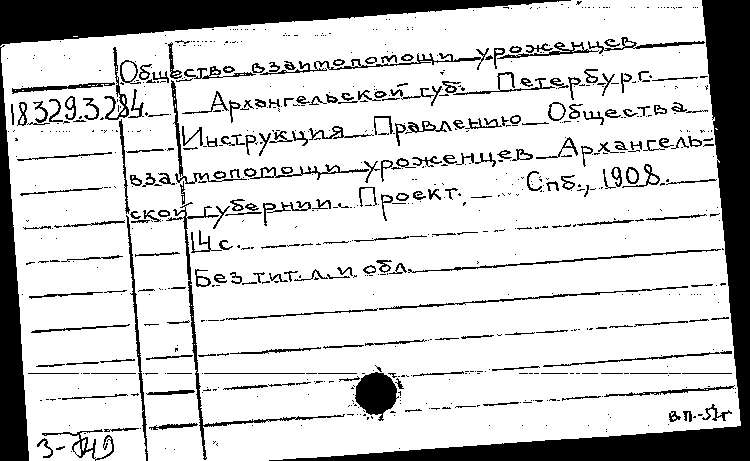 Общество взаимопомощи уроженцев
18.329.3.284. Архангельской губ. Петербург.
Инструкция Правлению Общества
взаимопомощи уроженцев Архангель=
ской губернии. Проект. Спб., 1908.
14 с.
Без тит. л. и обл.
В.П.-51г